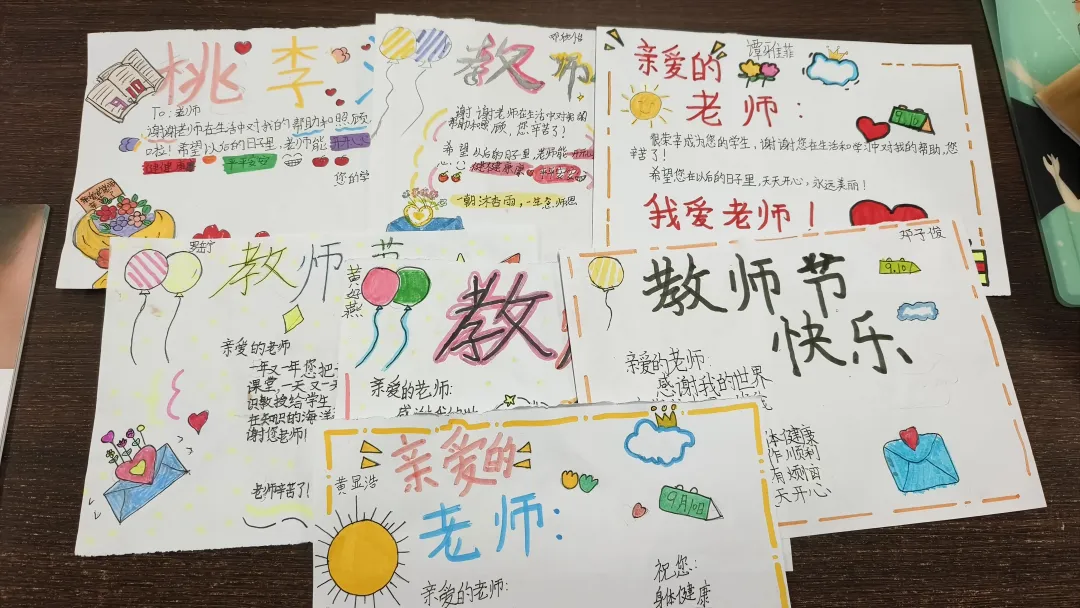 桃 李
To:老师
谢谢老师在生活中对我的帮助和照顾,
啦!希望以后的日子里,老师能开开心心
健健康康 平平安安
您的学
9.10
教师
谢谢老师在生活中对我的
帮助和照顾,您辛苦了!
希望以后的日子里,老师能开开心心
健健康康 平平安安
一朝沐杏雨,一生念师恩
谭雅菲
亲爱的
老师:
9.10
很荣幸成为您的学生,谢谢您在生活和学习中对我的帮助,您
辛苦了!
希望您在以后的日子里,天天开心,永远美丽!
我爱老师!
教师节
亲爱的老师
一年又一年您把
课堂,一天又一天
识教授给学生
在知识的海洋
谢谢您老师!
老师辛苦了!
黄好燕
教
亲爱的老师:
邓子俊
教师节
快乐
9.10
亲爱的老师:
感谢我的世界
体健康
作顺利
有烦恼
天开心
黄显浩
亲爱的
老师:
9月10日
亲爱的老师:
祝您:
身体健康